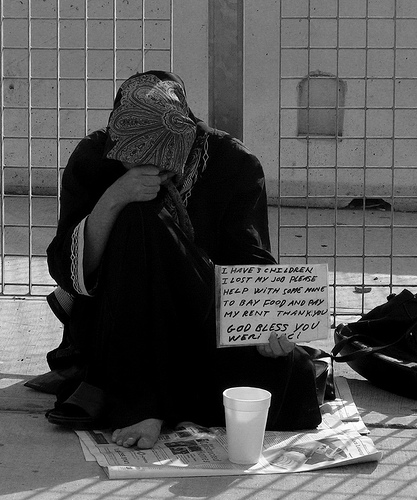 I HAVE 3 CHILDREN
I LOST MY JOB PLEASE
HELP WITH SOME MONE
TO BAY FOOD AND PAY
MY RENT THANK YOU
GOD BLESS YOU